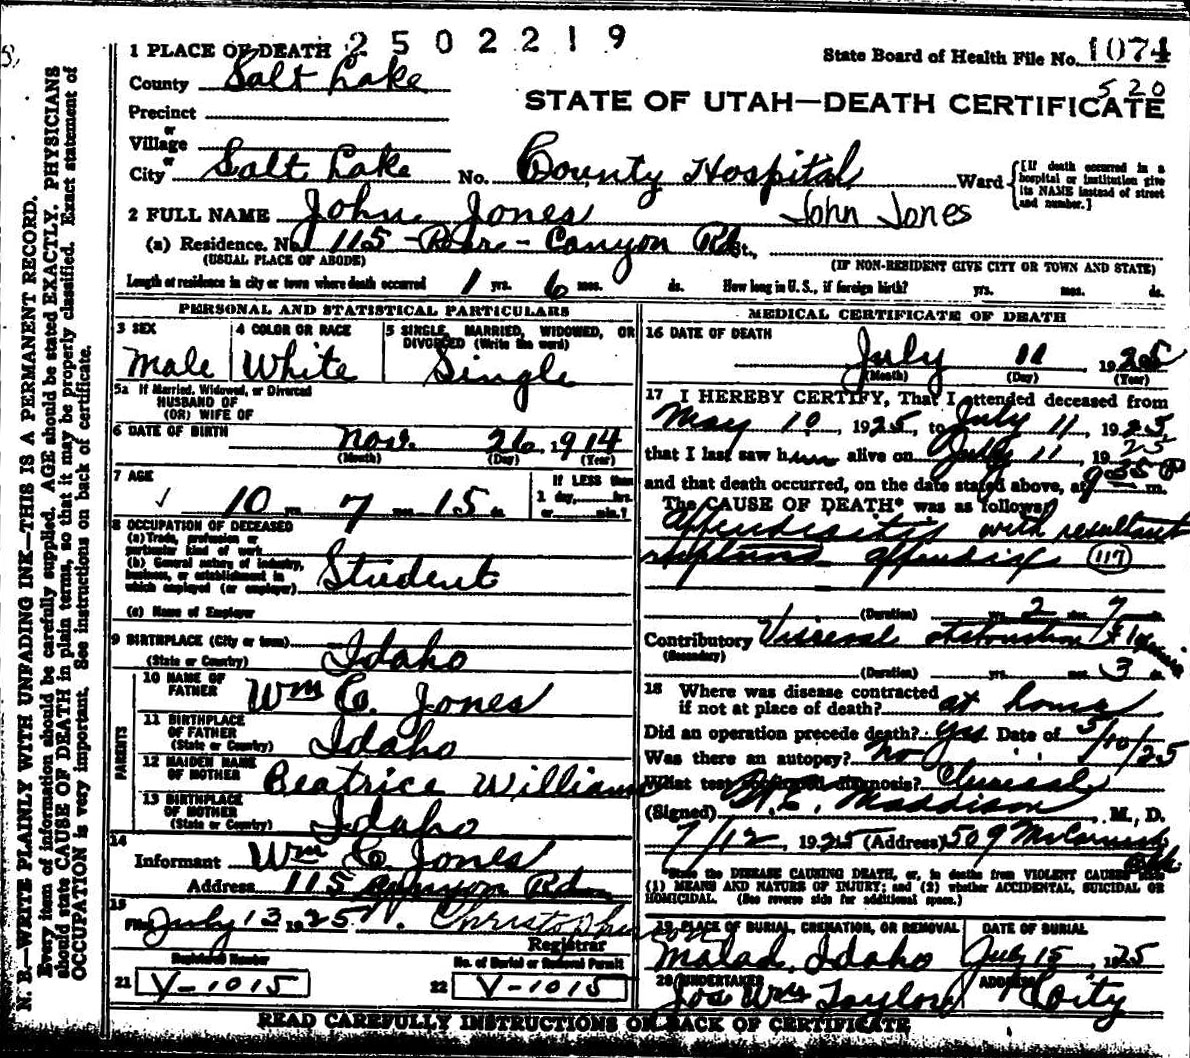 2502219
1 PLACE OF DEATH
State Board of Health File No. 1074
County Salt Lake
520
STATE OF UTAH—DEATH CERTIFICATE
Precinct
or
Village
or
City Salt Lake No. County Hospital Ward [If death occurred in a hospital or institution give its NAME instead of street and number.]
2 FULL NAME John Jones John Jones
(a) Residence. No. 115 Canyon Rd St.,
(USUAL PLACE OF ABODE) (IF NON-RESIDENT GIVE CITY OR TOWN AND STATE)
Length of residence in city or town where death occurred 1 yrs. 6 mos. ds. How long in U. S., if foreign birth? yrs. mos. ds.
PERSONAL AND STATISTICAL PARTICULARS
3 SEX 4 COLOR OR RACE 5 SINGLE, MARRIED, WIDOWED, OR DIVORCED (Write the word)
Male White Single
5a If Married, Widowed, or Divorced
HUSBAND OF
(OR) WIFE OF
6 DATE OF BIRTH Nov. 26 1914
(Month) (Day) (Year)
7 AGE
10 yrs. 7 mos. 15 ds.
If LESS than
1 day, hrs.
or min.?
8 OCCUPATION OF DECEASED
(a) Trade, profession or
particular kind of work
(b) General nature of industry,
business, or establishment in
which employed (or employer) Student
(c) Name of Employer
9 BIRTHPLACE (City or town)
(State or Country) Idaho
PARENTS
10 NAME OF
FATHER Wm C. Jones
11 BIRTHPLACE
OF FATHER
(State or Country) Idaho
12 MAIDEN NAME
OF MOTHER Beatrice Williams
13 BIRTHPLACE
OF MOTHER
(State or Country) Idaho
14
Informant Wm C Jones
Address 115 Canyon Rd
15
Filed July 13 1925 Christopherson
Registrar
Registered Number No. of Burial or Removal Permit
21 V-1015 22 V-1015
MEDICAL CERTIFICATE OF DEATH
16 DATE OF DEATH
July 11 1925
(Month) (Day) (Year)
17 I HEREBY CERTIFY, That I attended deceased from
May 10, 1925, to July 11, 1925
that I last saw him alive on July 11, 1925
and that death occurred, on the date stated above, at 9:35 P m.
The CAUSE OF DEATH* was as follows:
Appendicitis with resultant
ruptured appendix (117)
(Duration) yrs. 2 mos. 7 ds.
Contributory Visceral obstruction
(Secondary)
(Duration) yrs. mos. 3 ds.
18 Where was disease contracted
if not at place of death? at home
Did an operation precede death? yes Date of 5/10/25
Was there an autopsy? No
What test confirmed diagnosis? Clinical
(Signed) Maddison, M. D.
7/12, 1925 (Address) 509 McCornick
*State the DISEASE CAUSING DEATH, or, in deaths from VIOLENT CAUSES state
(1) MEANS AND NATURE OF INJURY; and (2) whether ACCIDENTAL, SUICIDAL OR
HOMICIDAL. (See reverse side for additional space.)
19 PLACE OF BURIAL, CREMATION, OR REMOVAL DATE OF BURIAL
Malad, Idaho July 15, 1925
20 UNDERTAKER ADDRESS
Jos Wm Taylor City
READ CAREFULLY INSTRUCTIONS ON BACK OF CERTIFICATE
N. B.—WRITE PLAINLY WITH UNFADING INK—THIS IS A PERMANENT RECORD.
Every item of information should be carefully supplied. AGE should be stated EXACTLY. PHYSICIANS
should state CAUSE OF DEATH in plain terms, so that it may be properly classified. Exact statement of
OCCUPATION is very important. See instructions on back of certificate.